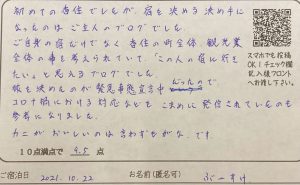 初めての香住でしたが、宿を決める決め手に
なったのは ご主人のブログでした。
ご自身の宿だけでなく 香住の町全体、観光業
全体の事を考えられていて「この人の宿に行き
たい」と思えるブログでした。
宿を決めたのが 緊急事態宣言中
コロナ禍における対応なども こまめに発信されていたのも
参考になりました。
カニがおいしいのは言わずもがな、です。
10点満点で 9.5 点
ご宿泊日 2021.10.22 お名前(匿名可) ぶーすけ
スマホでも投稿
OK！チェック欄
記入後フロント
へお渡し下さい。